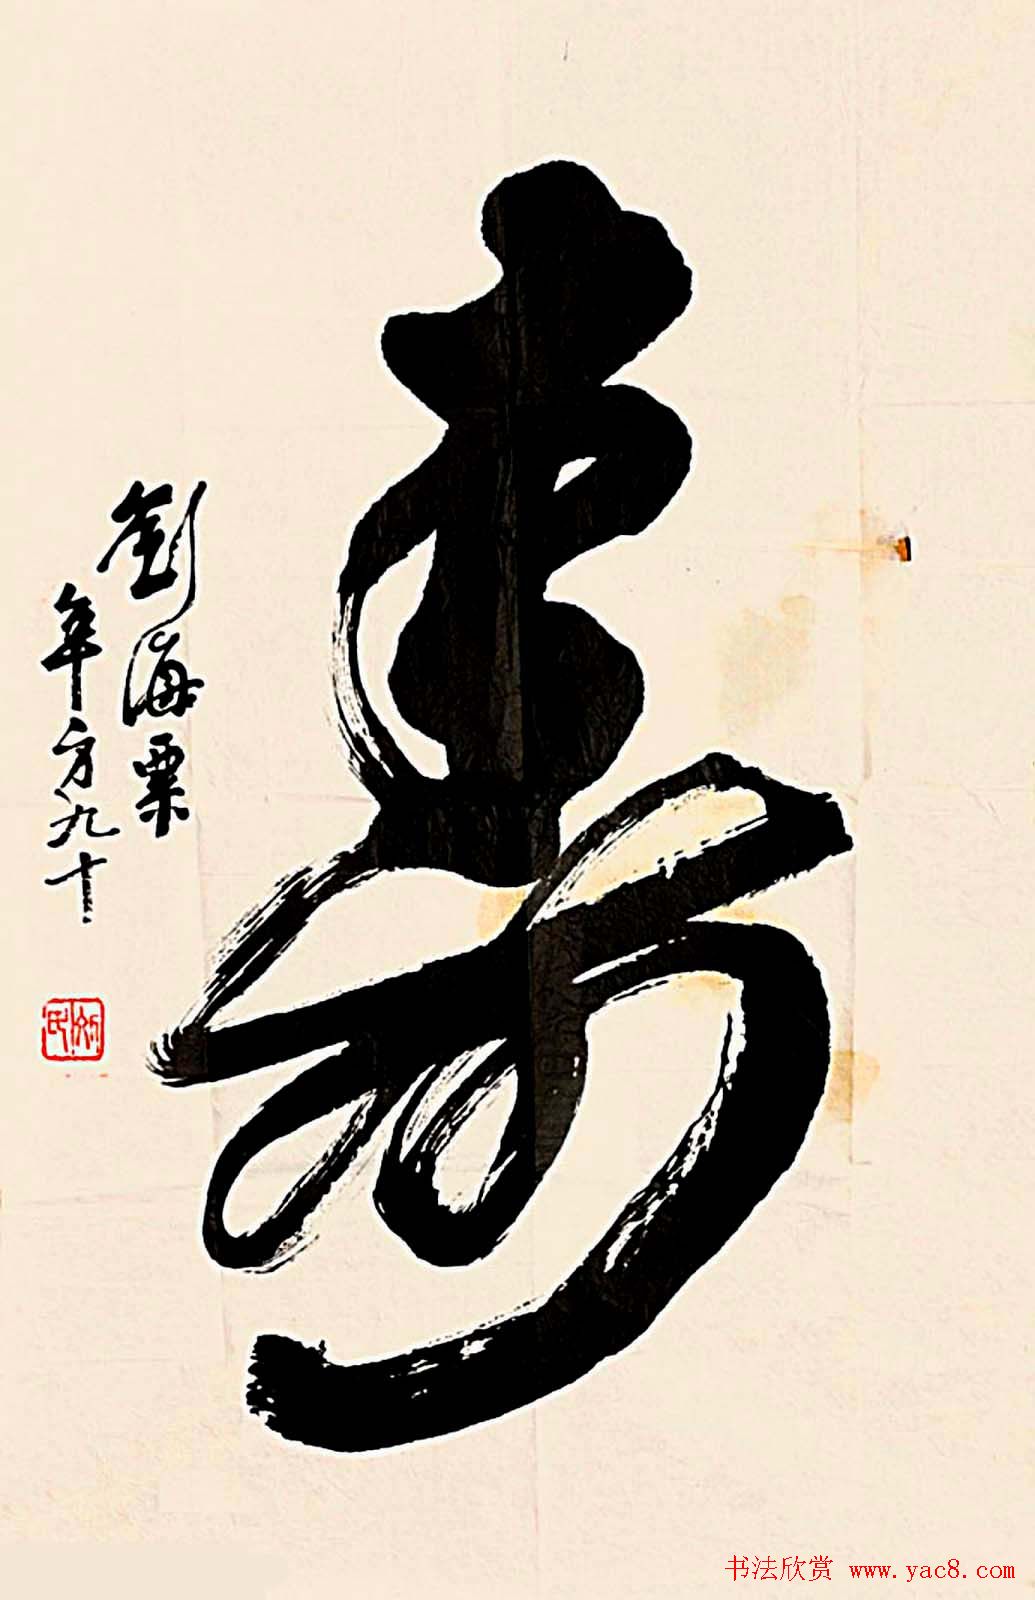 壽
劉海粟
年方九十
劉氏
书法欣赏 www.yac8.com